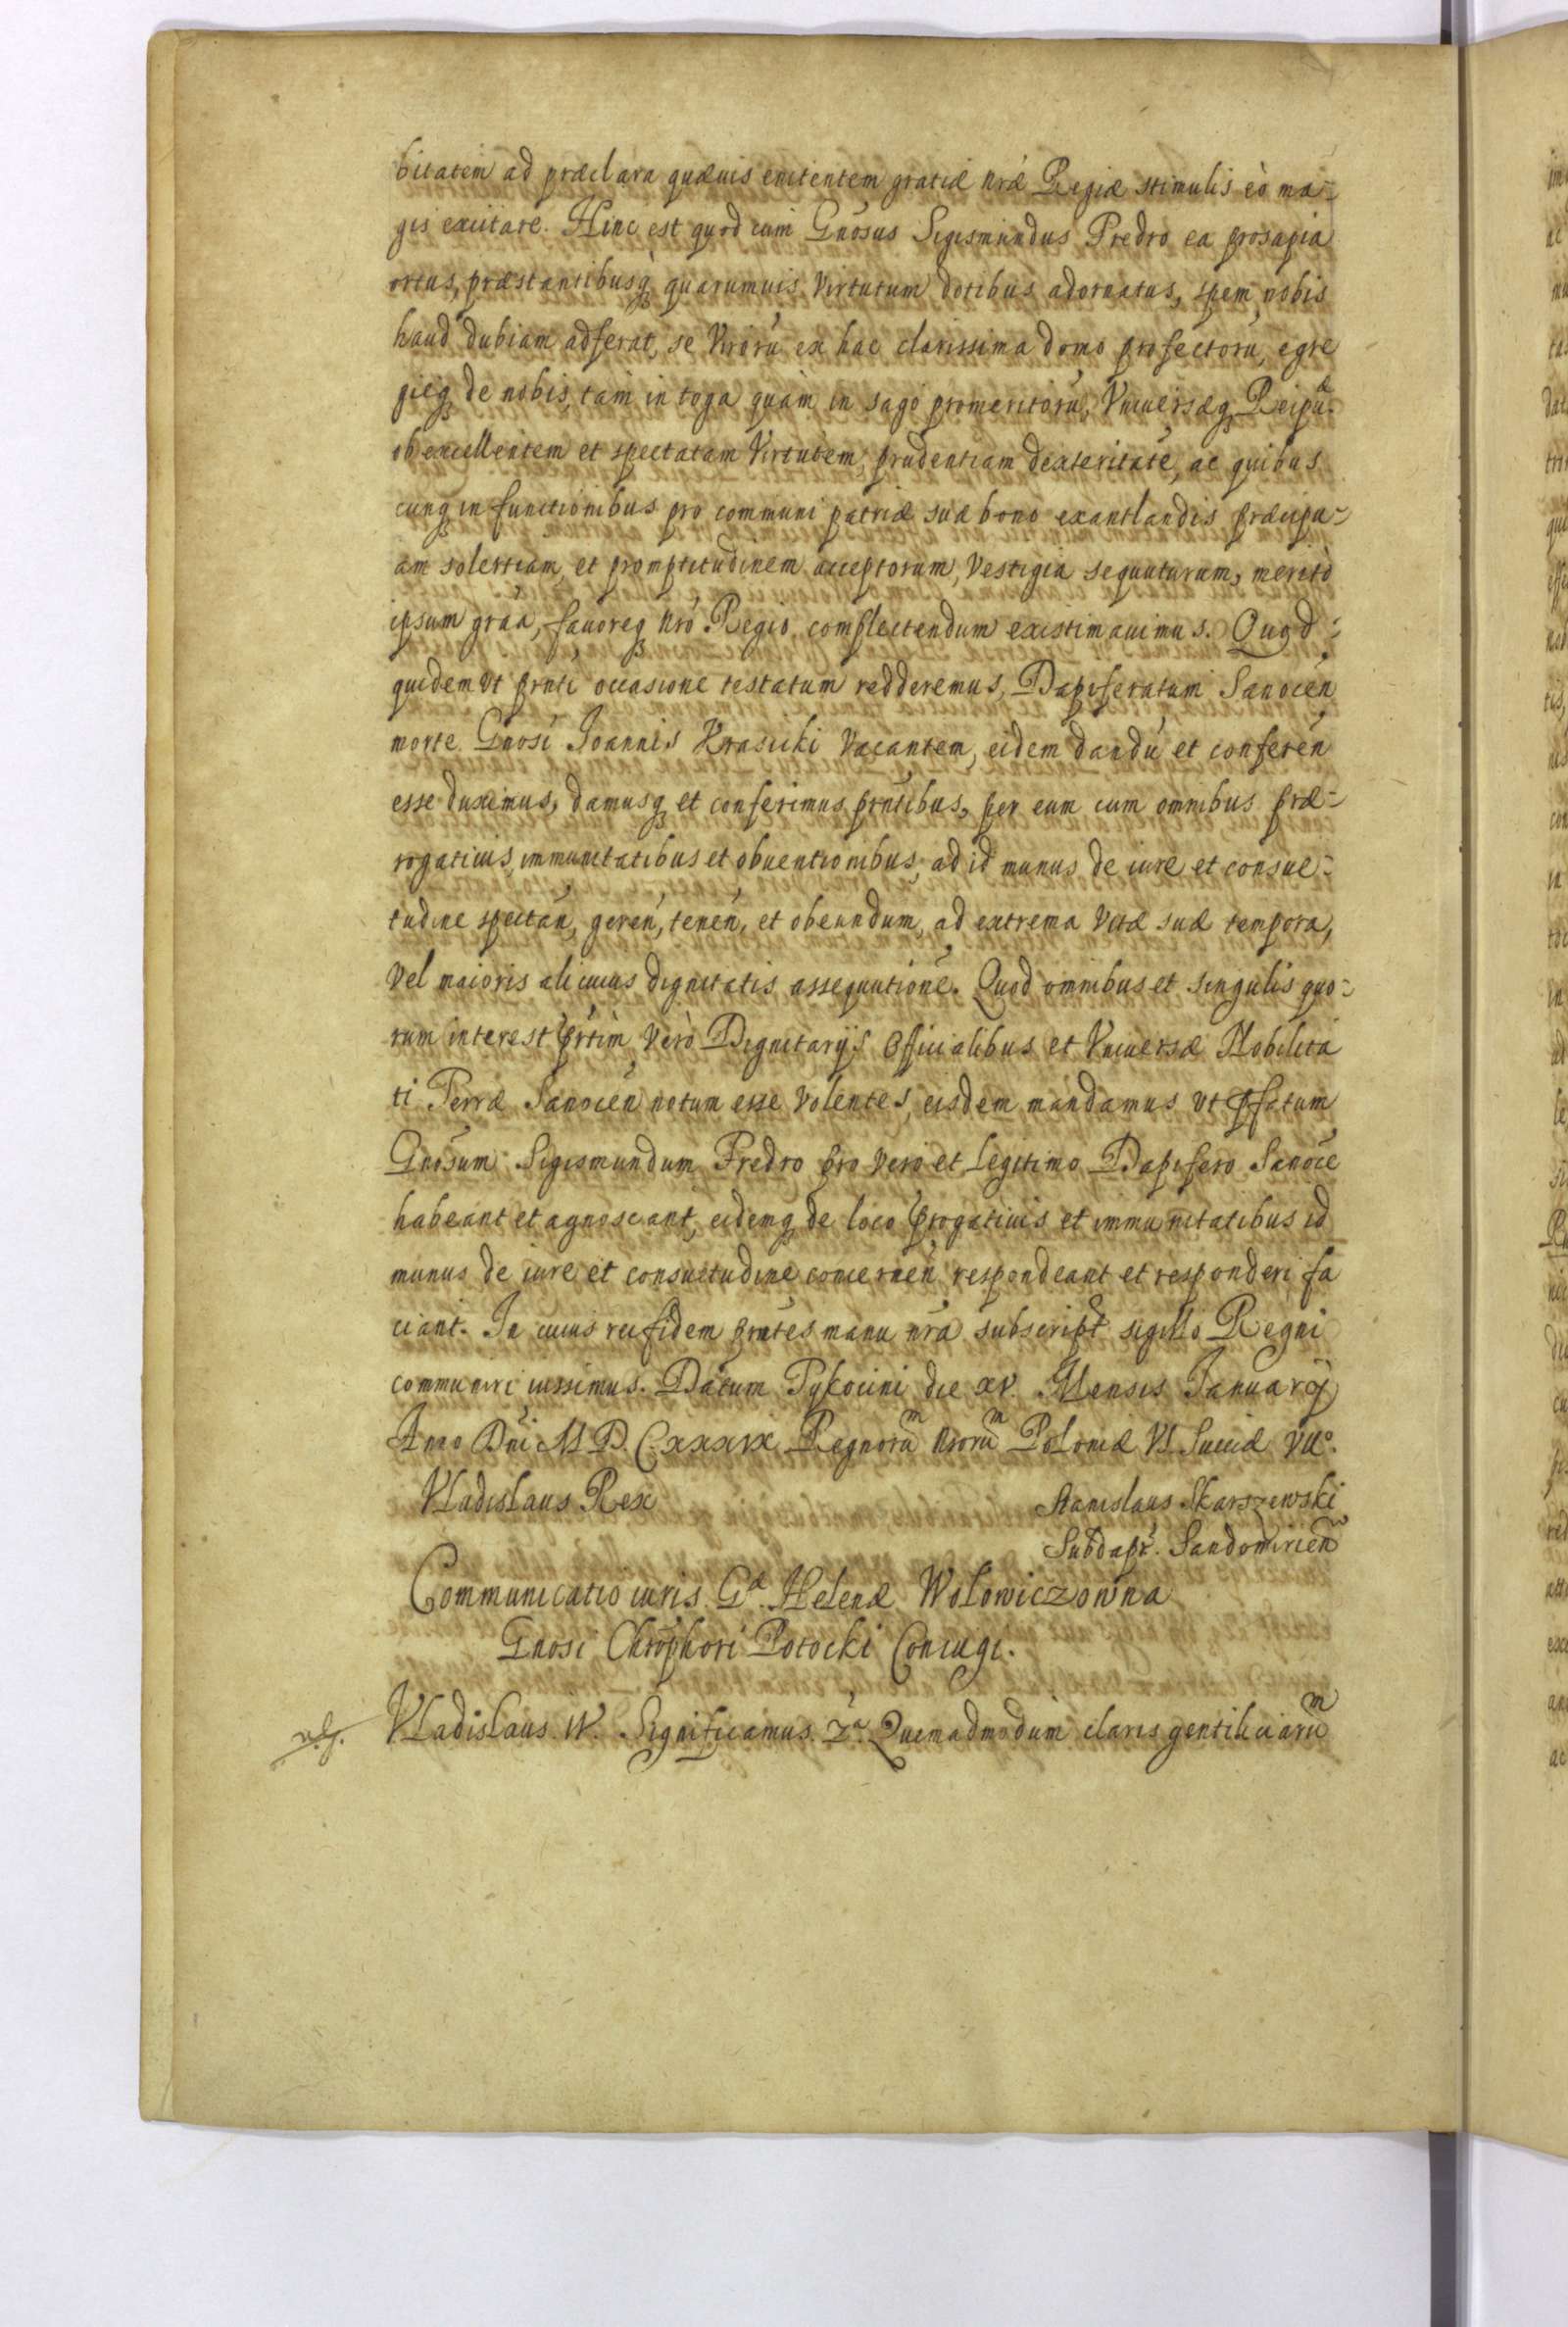 bitatem ad præclara quæuis enitentem gratiæ nræ Regiæ stimulis eò ma-
gis excitare. Hinc est quod cum Gnosus Sigismundus Fredro ea prosapia
ortus, præstantibusq quarumuis Virtutum dotibus adornatus, spem nobis
haud dubiam adferat, se Virorũ ex hac clarissima domo profectorũ, egre
gieq de nobis, tam in toga quàm in sago promeritorũ, Vniuersæq Reipũ
ob excellentem et spectatam Virtutem, prudentiam dexteritatẽ, ac quibus
cunq in functionibus pro communi patriæ suæ bono exantlandis præcipu-
am solertiam, et promptitudinem acceptorum, Vestigia sequuturum, meritò
ipsum graa, fauoreq nro Regio complectendum existimauimus. Quod-
quidem Vt prnti occasione testatum redderemus, Dapiferatum Sanocen
morte Gnosi Joannis Krasicki Vacantem, eidem dandũ et conferen
esse duximus, damusq et conferimus prntibus, per eum cum omnibus præ-
rogatiuis, immunitatibus et obuentionibus, ad id munus de iure et consue-
tudine spectan, geren, tenen, et obeundum, ad extrema Vitæ suæ tempora,
Vel maioris alicuius dignitatis assequutionẽ. Quod omnibus et singulis quo-
rum interest prtim Verò Dignitarijs Officialibus et Vniuersæ Nobilita
ti Terræ Sanocen notum esse Volentes, eisdem mandamus Vt pfatum
Gnosum Sigismundum Fredro pro Vero et Legitimo Dapifero Sanoce
habeant et agnoscant, eidemq de loco progatiuis et immunitatibus id
munus de iure et consuetudine concernen respondeant et responderi fa
ciant. In cuius rei fidem prntes manu nra subscript sigillo Regni
communiri iussimus. Datum Tykocini die xv. Mensis Januarij
Anno Dni M D CXXXIX Regnorũ nrorũ Poloniæ VI Sueciæ VII°.
Vladislaus Rex
Stanislaus Skarszewski
Subdapr. Sandomirien
Communicatio iuris Gæ Helenæ Wolowiczowna
Gnosi Chrophori Potocki Coniugi.
Vladislaus IV. Significamus. Quemadmodum claris gentiliciarũ